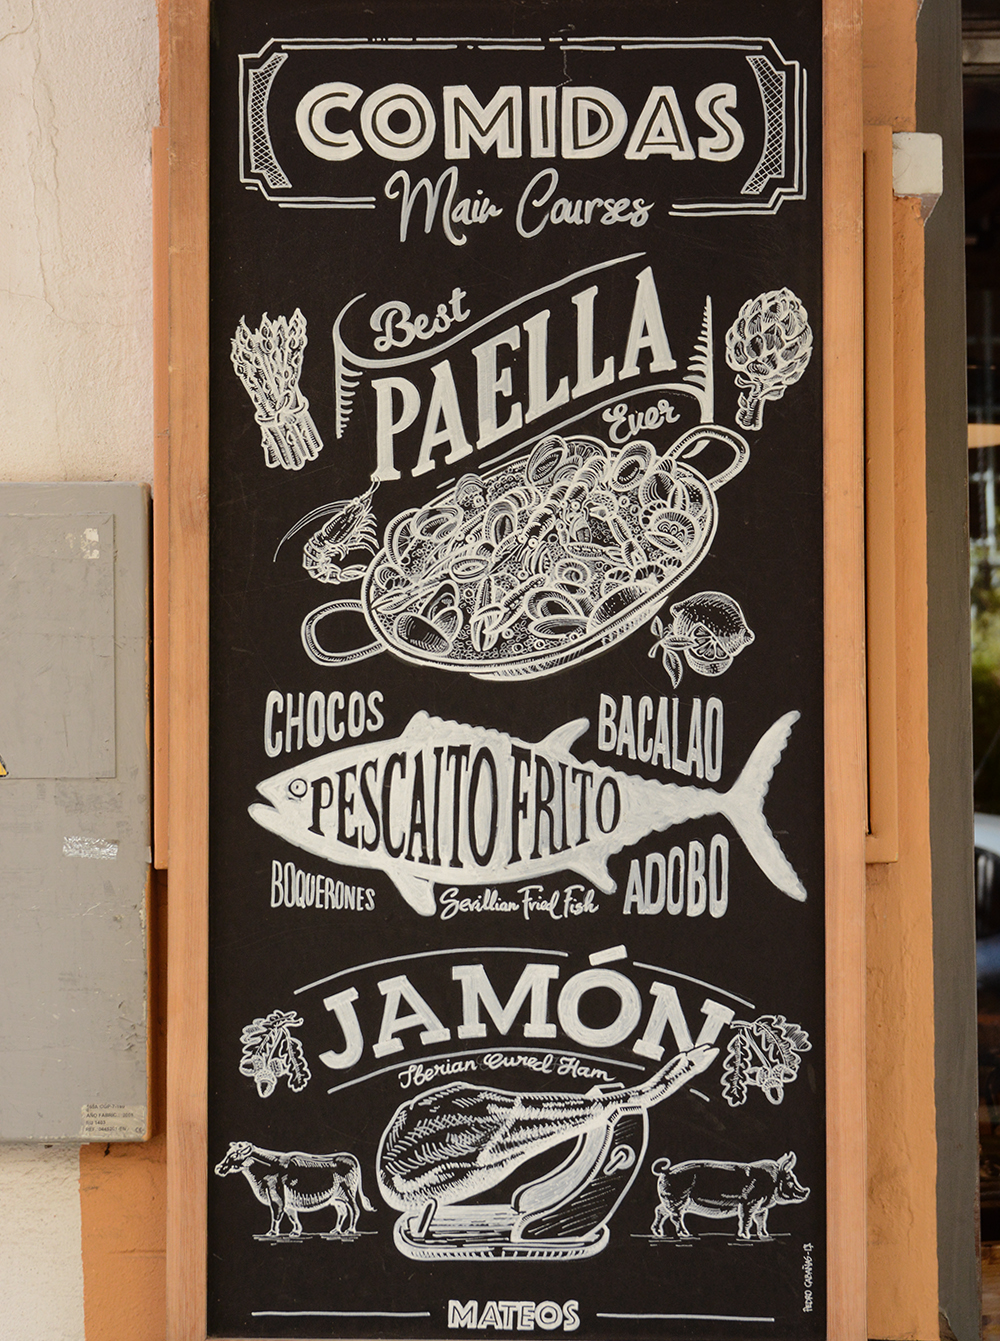 COMIDAS
Main Courses
Best
PAELLA
Ever
CHOCOS
BACALAO
PESCAITO FRITO
BOQUERONES
Sevillian Fried Fish
ADOBO
JAMÓN
Iberian Cured Ham
MATEOS
PEDRO CABAÑAS-17